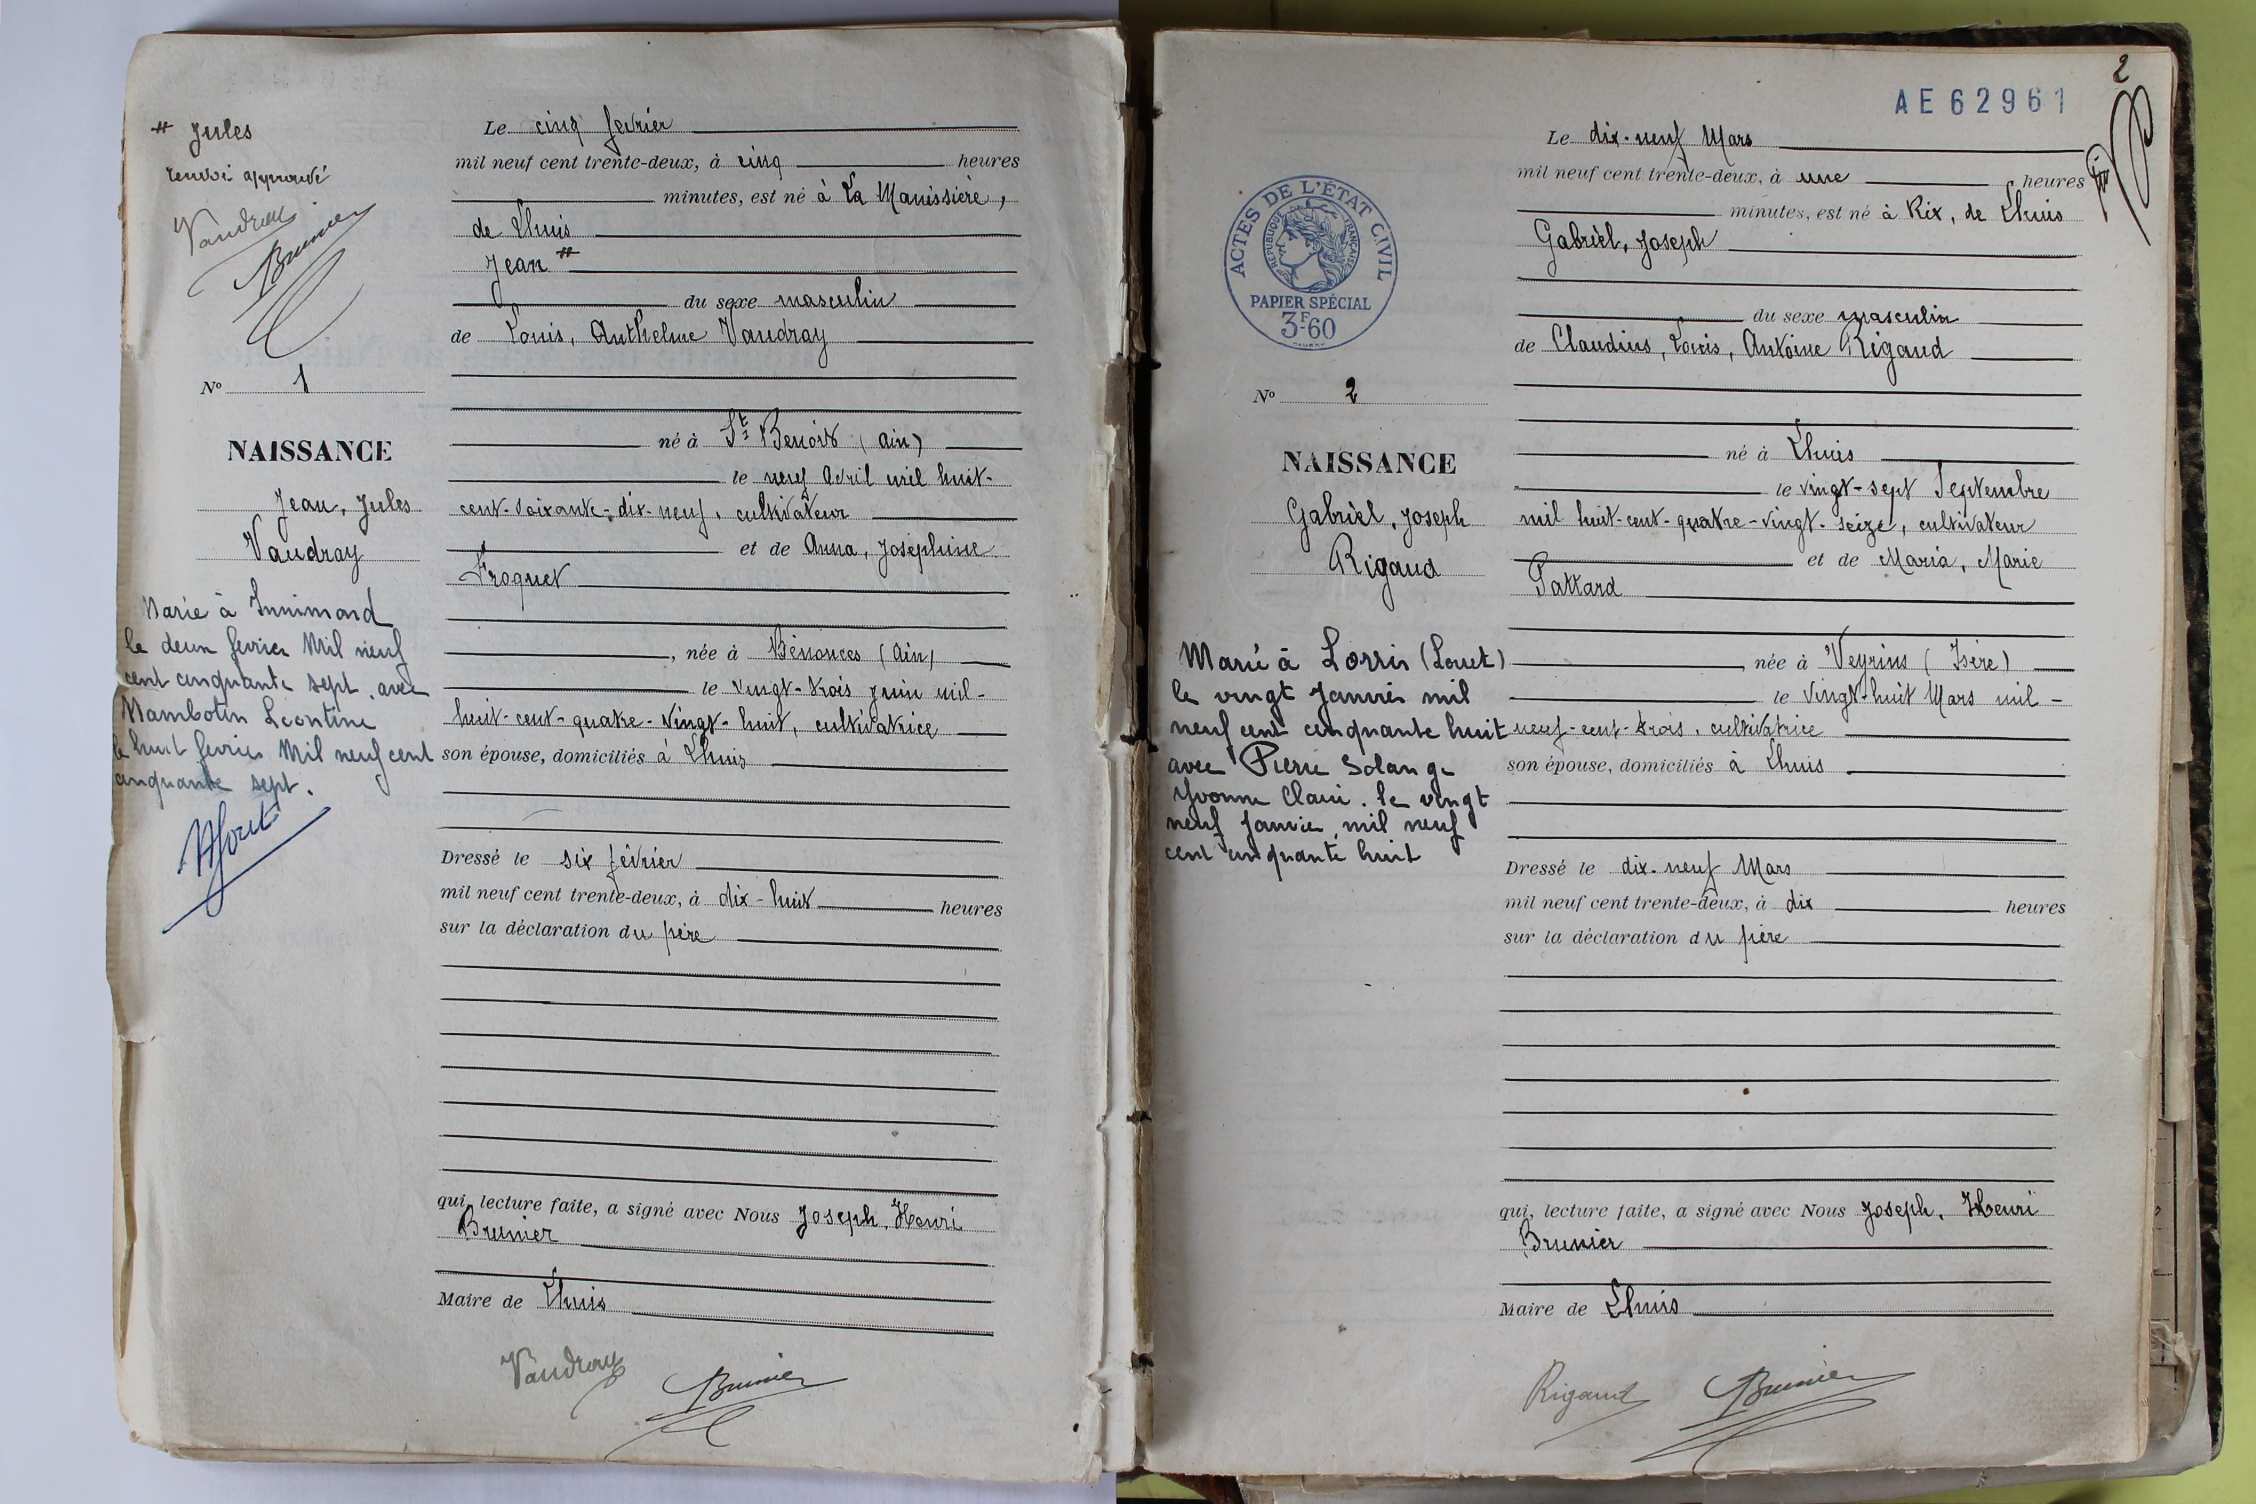 # Jules
renvoi approuvé
Vaudray
Brunier
N° 1
NAISSANCE
Jean, Jules
Vaudray
Marié à Innimond
le deux février Mil neuf
cent cinquante sept. avec
Mambotin Léontine
le huit février Mil neuf cent
cinquante sept.
Le cinq février
mil neuf cent trente-deux, à cinq heures
minutes, est né à La Manissière,
de Lhuis
Jean #
du sexe masculin
de Louis, Anthelme Vaudray
né à St Benoit (Ain)
le neuf Avril mil huit-
cent-soixante-dix-neuf, cultivateur
et de Anna, Joséphine
Froquet
, née à Bénonces (Ain)
le vingt-trois juin mil-
huit-cent-quatre-vingt-huit, cultivatrice
son épouse, domiciliés à Lhuis
Dressé le six février
mil neuf cent trente-deux, à dix-huit heures
sur la déclaration du père
qui, lecture faite, a signé avec Nous Joseph, Henri
Brunier
Maire de Lhuis
Vaudray
Brunier
2
AE62961
ACTES DE L'ÉTAT CIVIL
RÉPUBLIQUE FRANÇAISE
PAPIER SPÉCIAL
3F60
N° 2
NAISSANCE
Gabriel, Joseph
Rigaud
Marié à Lorris (Loiret)
le vingt Janvier mil
neuf cent cinquante huit
avec Pierre Solange
Yvonne Claire. le vingt
neuf Janvier mil neuf
cent cinquante huit
Le dix-neuf Mars
mil neuf cent trente-deux, à une heures
minutes, est né à Rix, de Lhuis
Gabriel, Joseph
du sexe masculin
de Claudius, Louis, Antoine Rigaud
né à Lhuis
le vingt-sept Septembre
mil huit-cent-quatre-vingt-seize, cultivateur
et de Maria, Marie
Pattard
née à Veyrins (Isère)
le vingt-huit Mars mil-
neuf-cent-trois, cultivatrice
son épouse, domiciliés à Lhuis
Dressé le dix-neuf Mars
mil neuf cent trente-deux, à dix heures
sur la déclaration du père
qui, lecture faite, a signé avec Nous Joseph, Henri
Brunier
Maire de Lhuis
Rigaud
Brunier